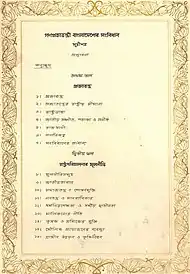 গণপ্রজাতন্ত্রী বাংলাদেশের সংবিধান
সূচীপত্র
প্রস্তাবনা
প্রথম ভাগ
প্রজাতন্ত্র
১। প্রজাতন্ত্র
২। প্রজাতন্ত্রের রাষ্ট্রীয় সীমানা
৩। রাষ্ট্রভাষা
৪। জাতীয় সঙ্গীত, পতাকা ও প্রতীক
৫। রাজধানী
৬। নাগরিকত্ব
৭। সংবিধানের প্রাধান্য
দ্বিতীয় ভাগ
রাষ্ট্রপরিচালনার মূলনীতি
৮। মূলনীতিসমূহ
৯। জাতীয়তাবাদ
১০। সমাজতন্ত্র ও শোষণমুক্তি
১১। গণতন্ত্র ও মানবাধিকার
১২। ধর্মনিরপেক্ষতা ও ধর্মীয় স্বাধীনতা
১৩। মালিকানার নীতি
১৪। কৃষক ও শ্রমিকের মুক্তি
১৫। মৌলিক প্রয়োজনের ব্যবস্থা
১৬। গ্রামীণ উন্নয়ন ও কৃষিবিপ্লব